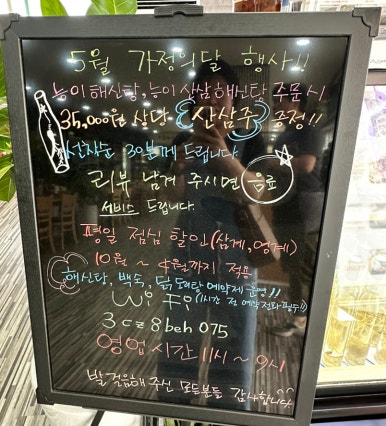 5월 가정의달 행사!!
능이해신탕, 능이산삼해신탕 주문시
35,000원 상당 (산삼주) 증정!!
선착순 30분께 드립니다.
리뷰 남겨 주시면 음료
서비스 드립니다.
평일 점심 할인(삼계,영계)
10월 ~ 4월까지 적용
해신탕, 백숙, 닭도리탕 예약제 운영!!
Wi Fi (1시간 전 예약전화필수!!)
3cz8beh075
영업시간 11시~9시
발걸음해 주신 모든분들 감사합니다